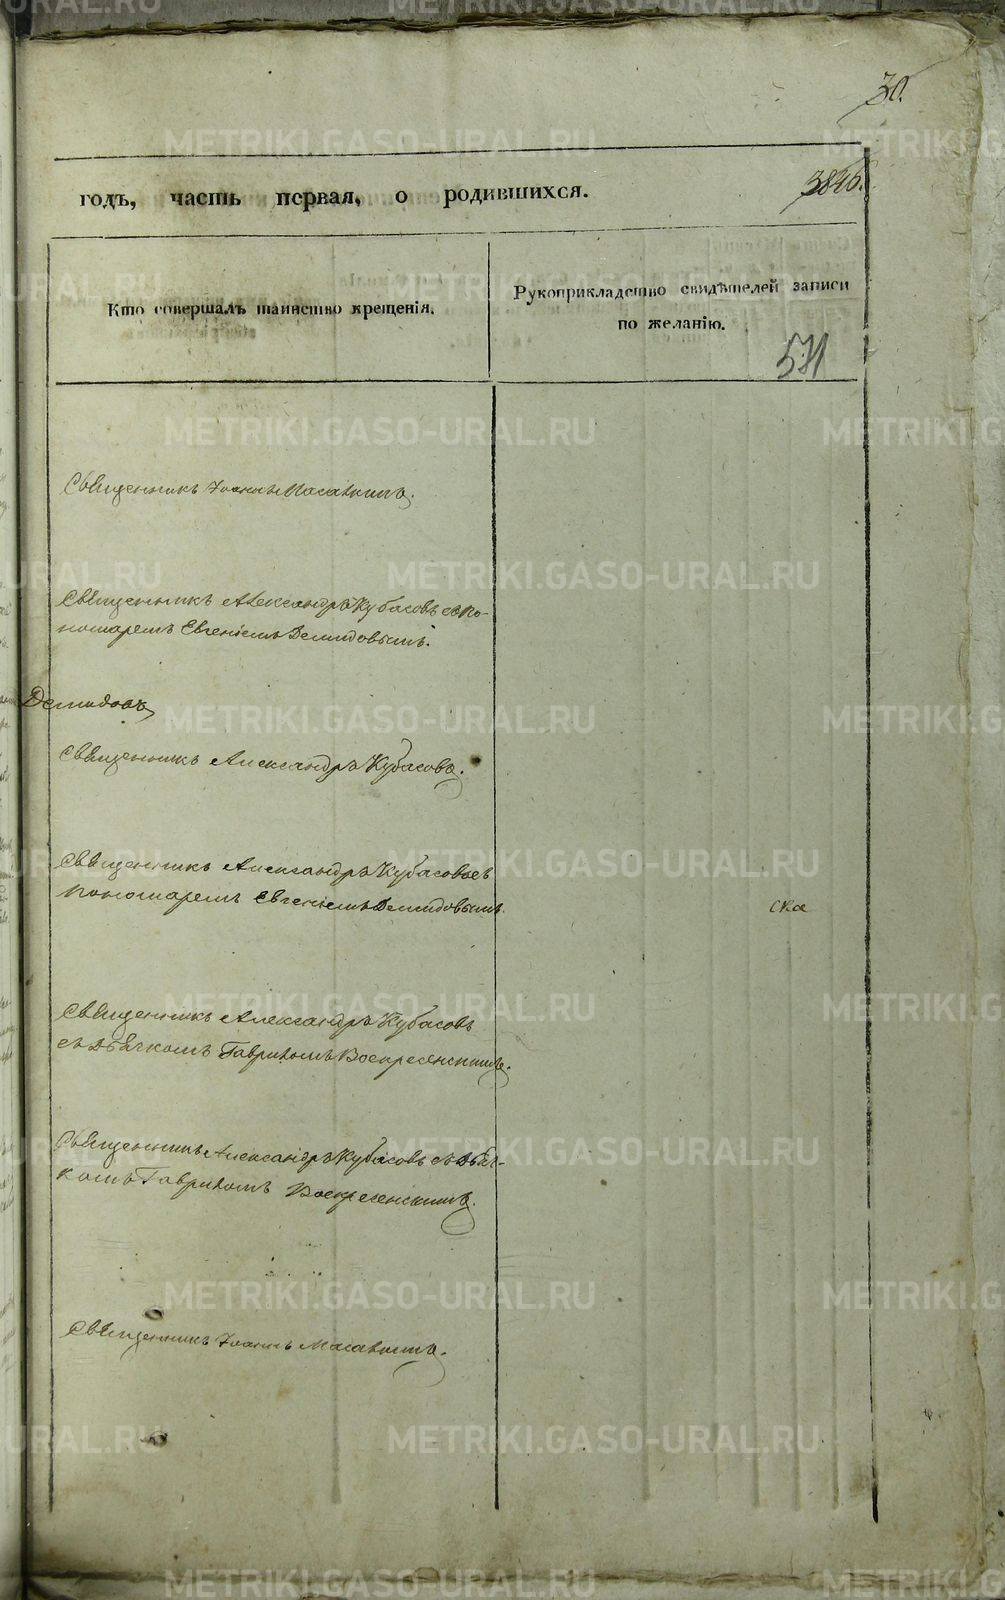 30.
годъ, часть первая, о родившихся.
Кто совершалъ таинство крещенія.
Рукоприкладство свидѣтелей записи
по желанію.
571
Священникъ Іоаннъ
Священникъ Александръ Кубасовъ съ по-
номаремъ Евгеніемъ Демидовымъ.
Демидовъ
Священникъ Александръ Кубасовъ.
Священникъ Александръ Кубасовъ съ
пономаремъ Евгеніемъ Демидовымъ.
ска
Священникъ Александръ Кубасовъ
съ дьячкомъ Гавриломъ Воскресенскимъ.
Священникъ Александръ Кубасовъ съ дьяч-
комъ Гавриломъ Воскресенскимъ.
Священникъ Іоаннъ
METRIKI.GASO-URAL.RU